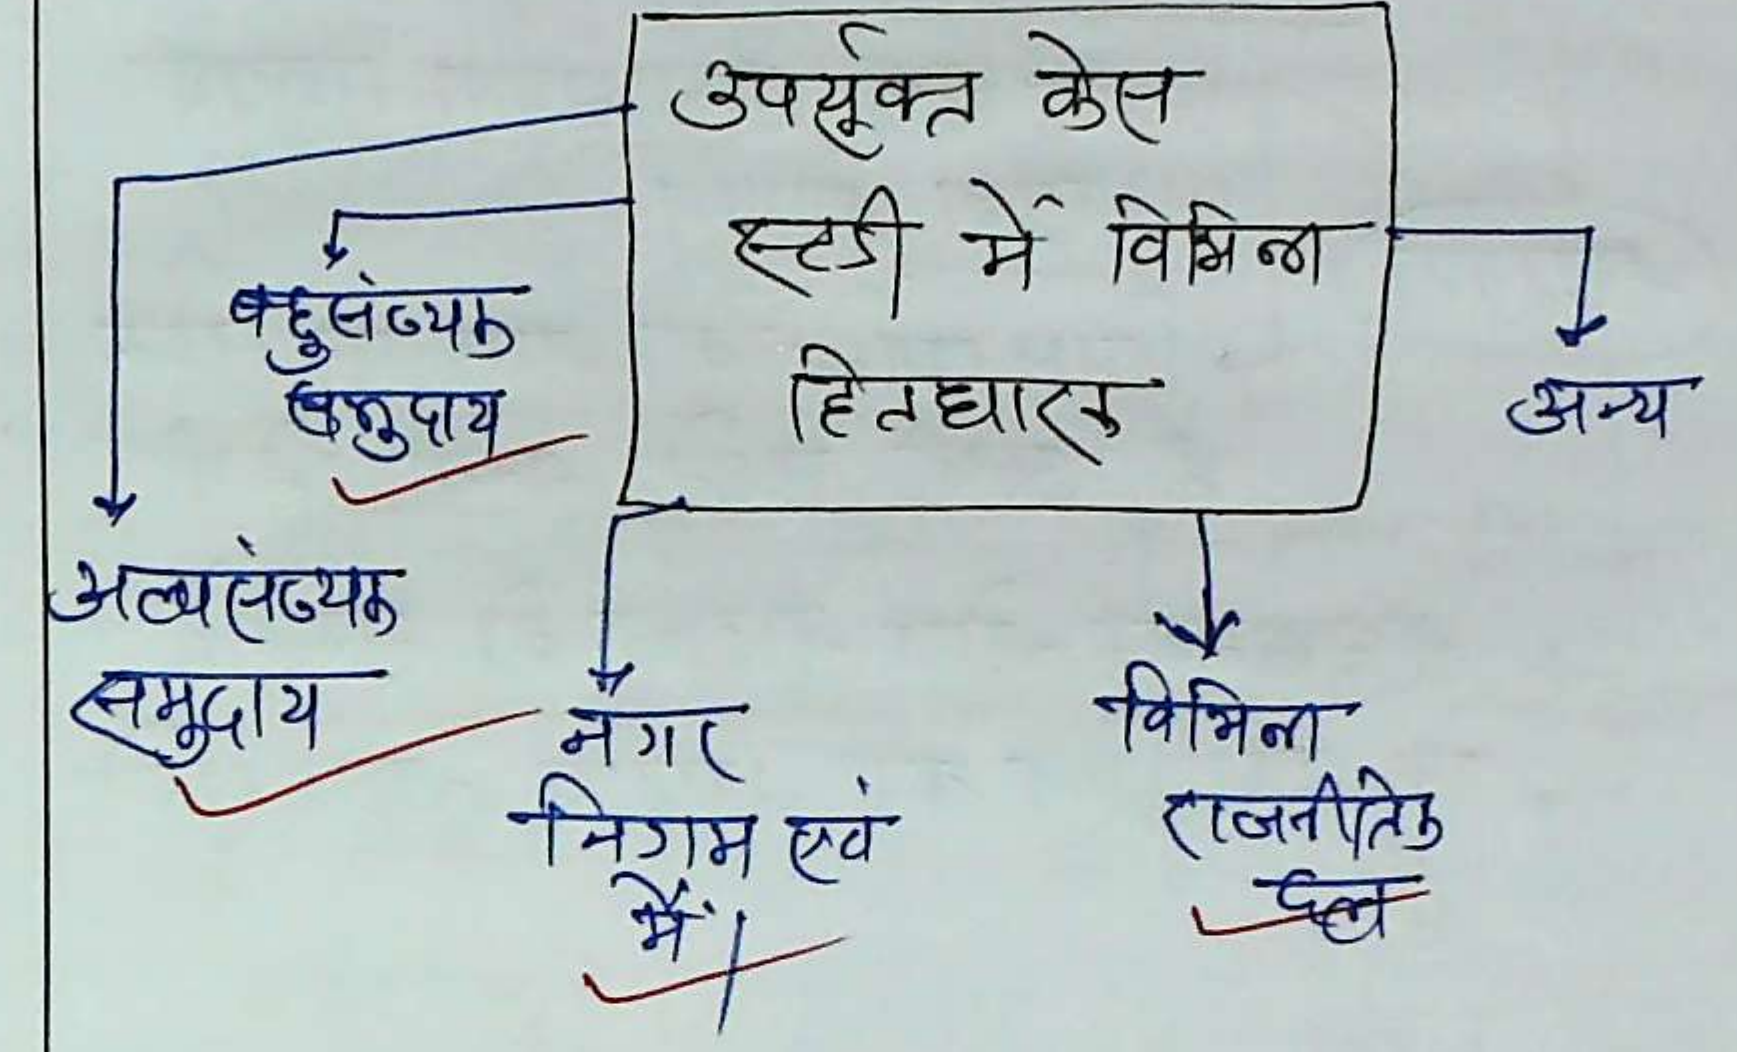 उपर्यूक्त केस
स्टडी में विभिन्न
हितधारक
बहुसंख्यक
समुदाय
अन्य
अल्पसंख्यक
समुदाय
नगर
निगम एवं
मैं।
विभिन्न
राजनीतिक
दल